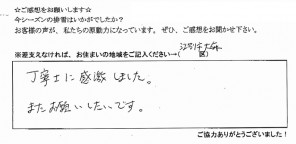 ☆ご感想をお願いします☆
今シーズンの排雪はいかがでしたか?
お客様の声が、私たちの原動力になっています。ぜひ、ご感想をお聞かせ下さい。
※差支えなければ、お住まいの地域をご記入ください→( 区)
丁寧さに感激しました。
またお願いしたいです。
ご協力ありがとうございました!